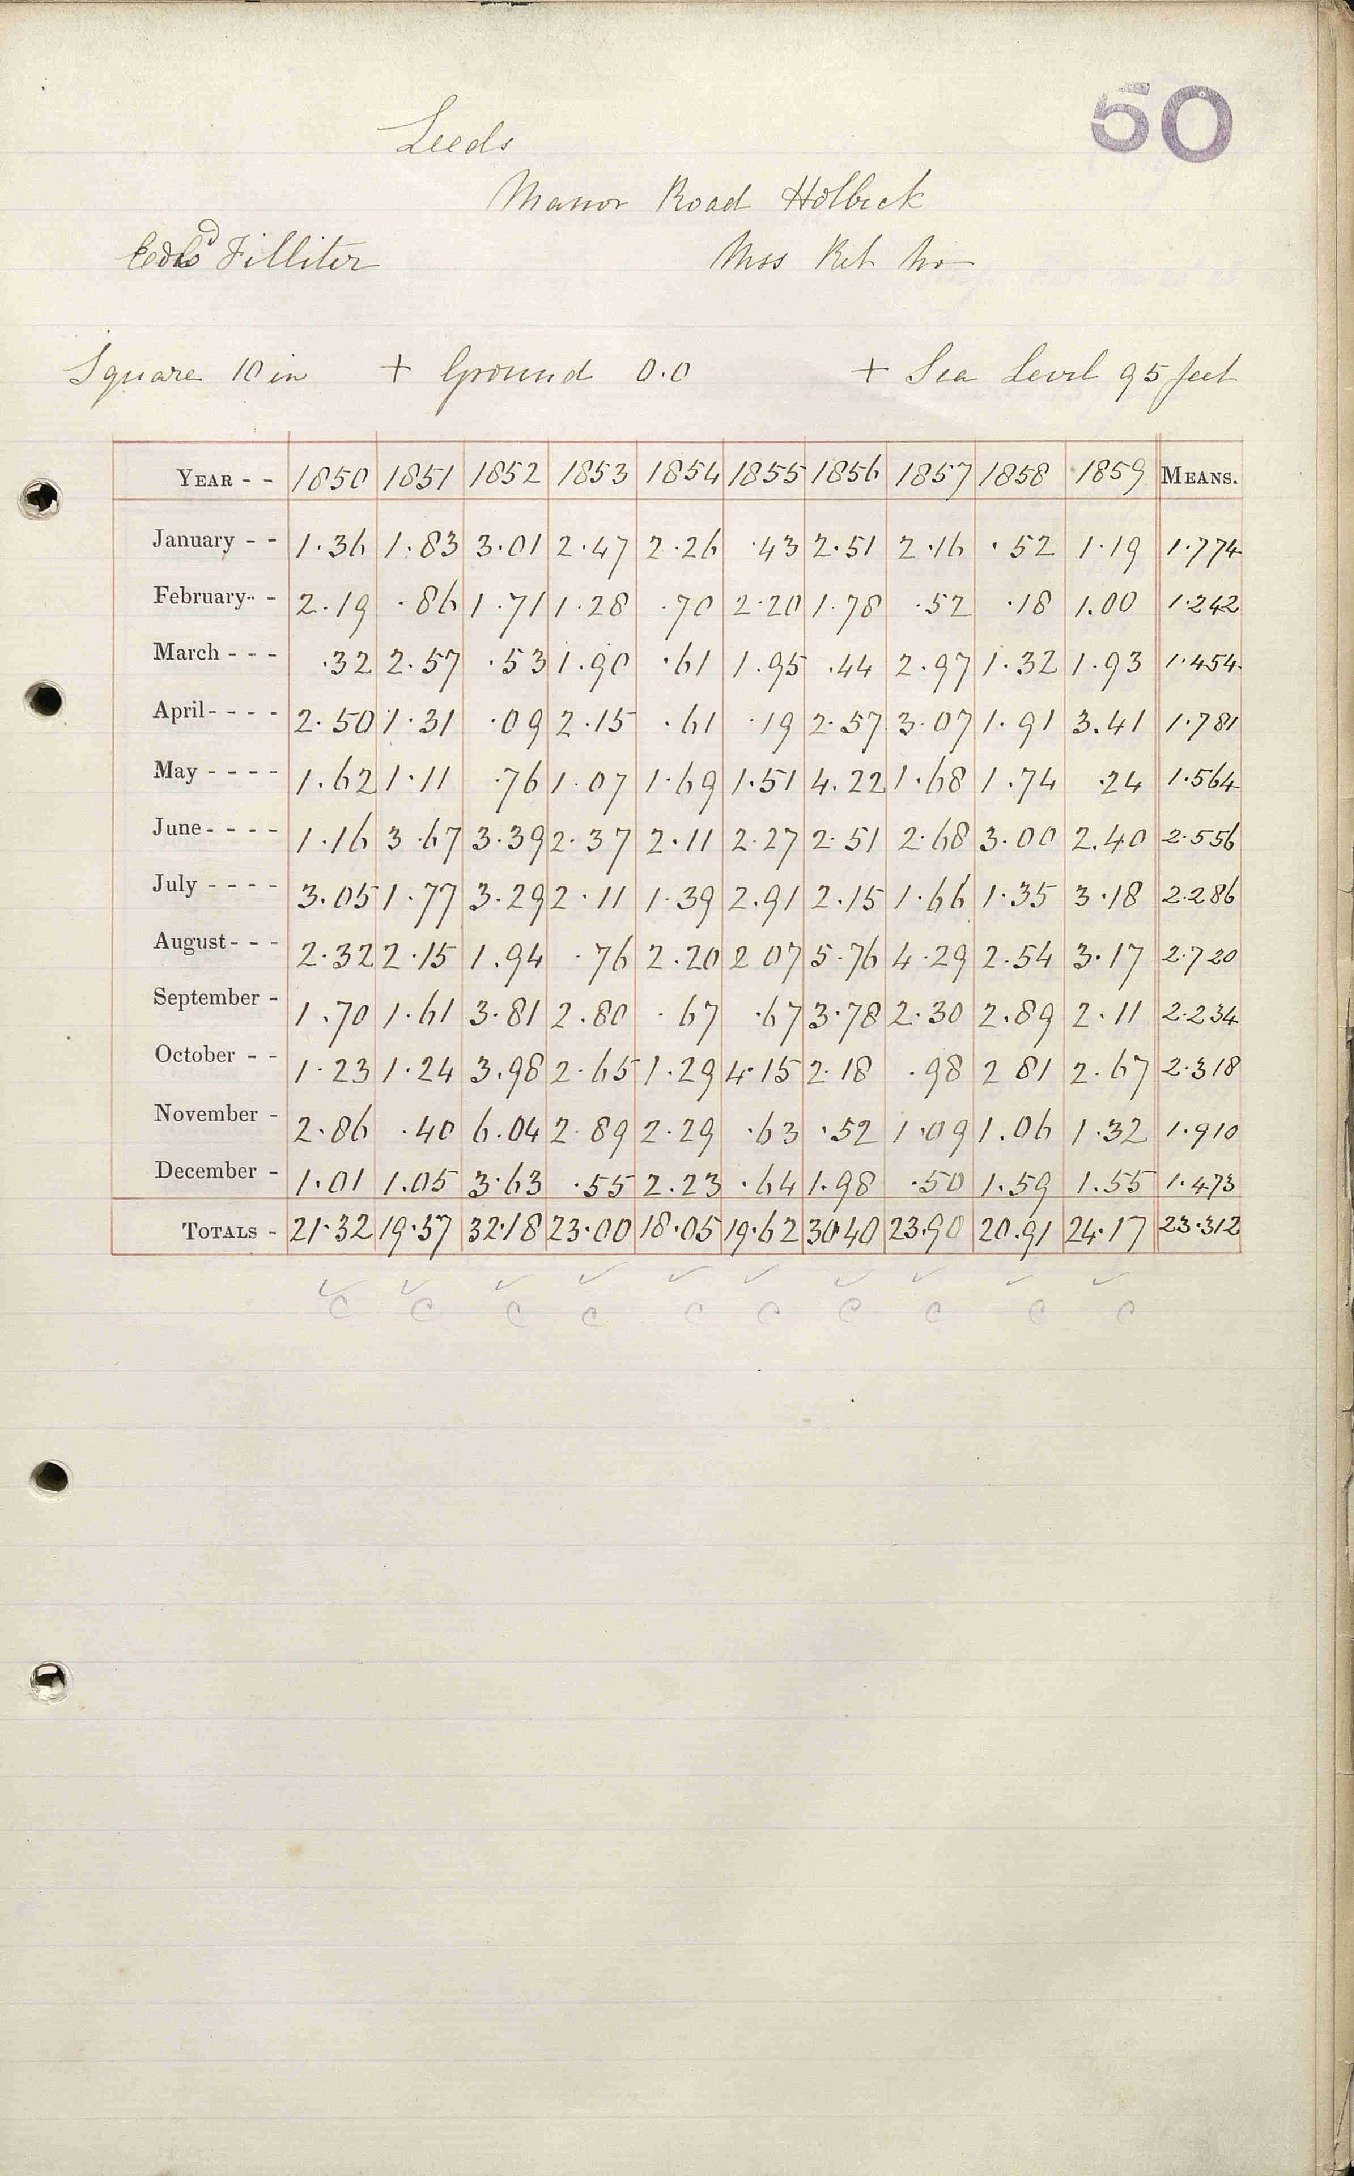 50
Leeds
Manor Road Holbeck
Filliter Mss Ret No
Square 10 in + Ground 0.0 + Sea Level 95 feet
YEAR - - 1850 1851 1852 1853 1854 1855 1856 1857 1858 1859 MEANS.
January - - 1.36 1.83 3.01 2.47 2.26 .43 2.51 2.16 .52 1.19 1.774
February - - 2.19 .86 1.71 1.28 .70 2.20 1.78 .52 .18 1.00 1.242
March - - - .32 2.57 .53 1.90 .61 1.95 .44 2.97 1.32 1.93 1.454
April - - - - 2.50 1.31 .09 2.15 .61 .19 2.57 3.07 1.91 3.41 1.781
May - - - - 1.62 1.11 .76 1.07 1.69 1.51 4.22 1.68 1.74 .24 1.564
June - - - - 1.16 3.67 3.39 2.37 2.11 2.27 2.51 2.68 3.00 2.40 2.556
July - - - - 3.05 1.77 3.29 2.11 1.39 2.91 2.15 1.66 1.35 3.18 2.286
August - - - 2.32 2.15 1.94 .76 2.20 2 07 5.76 4.29 2.54 3.17 2.720
September - 1.70 1.61 3.81 2.80 .67 .67 3.78 2.30 2.89 2.11 2.234
October - - 1.23 1.24 3.98 2.65 1.29 4.15 2.18 .98 2 81 2.67 2.318
November - 2.86 .40 6.04 2.89 2.29 .63 .52 1.09 1.06 1.32 1.910
December - 1.01 1.05 3.63 .55 2.23 .64 1.98 .50 1.59 1.55 1.473
TOTALS - 21.32 19.57 32.18 23.00 18.05 19.62 30.40 23.90 20.91 24.17 23.312
✓ ✓ ✓ ✓ ✓ ✓ ✓ ✓ ✓ ✓
C C C C C C C C C C